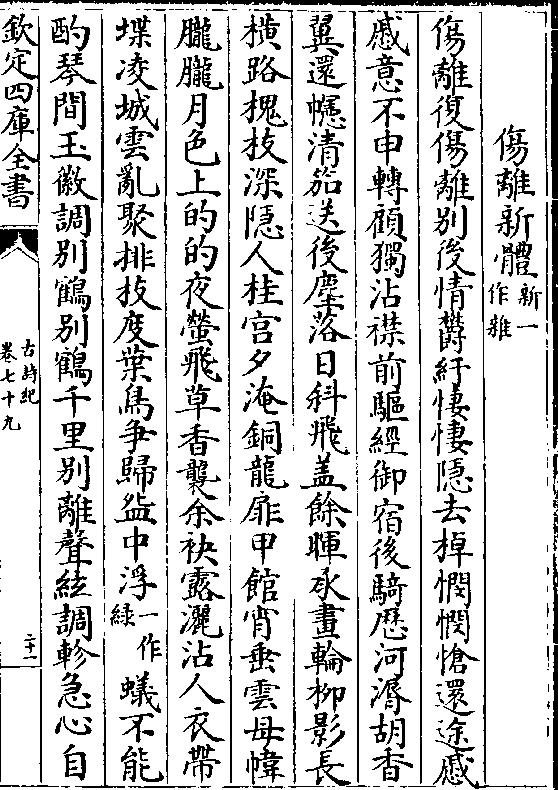 傷離新體新一作雜
傷離復傷離別後情鬱紆悽悽隱去棹憫憫愴還途慼
慼意不申轉顧獨沾襟前驅經御宿後騎歷河漘胡香
翼還幰清笳送後塵落日斜飛盖餘暉承畫輪柳影長
橫路槐枝深隱人桂宮夕淹銅龍扉甲館宵垂雲母幃
朧朧月色上的的夜螢飛草香襲余袂露灑沾人衣帶
堞凌城雲亂聚排枝度葉鳥爭歸盎中浮一作緑蟻不能
酌琴間玉徽調別鶴別鶴千里別離聲絃調軫急心自
欽定四庫全書
古詩紀
卷七十九
二十一